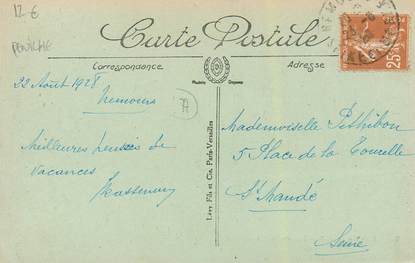 12 €
PENICHE
Carte Postale
Correspondance
Adresse
Modèle Déposé
25c
22 Août 1928
Nemours
Meilleures pensées de
vacances
Mademoiselle Péthibon
5 Place de la Tourelle
St Mandé
Seine
Lévy Fils et Cie, Paris-Versailles